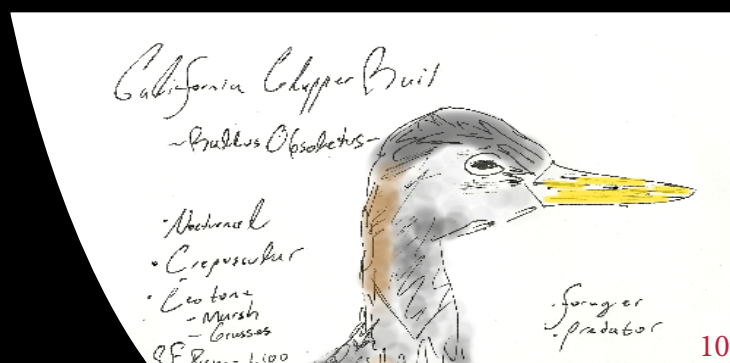 California Clapper Rail
~Rallus Obsoletus~
·Nocturnal
·Crepuscular
·Ecotone
- Marsh
- Grasses
·forager
·predator
10